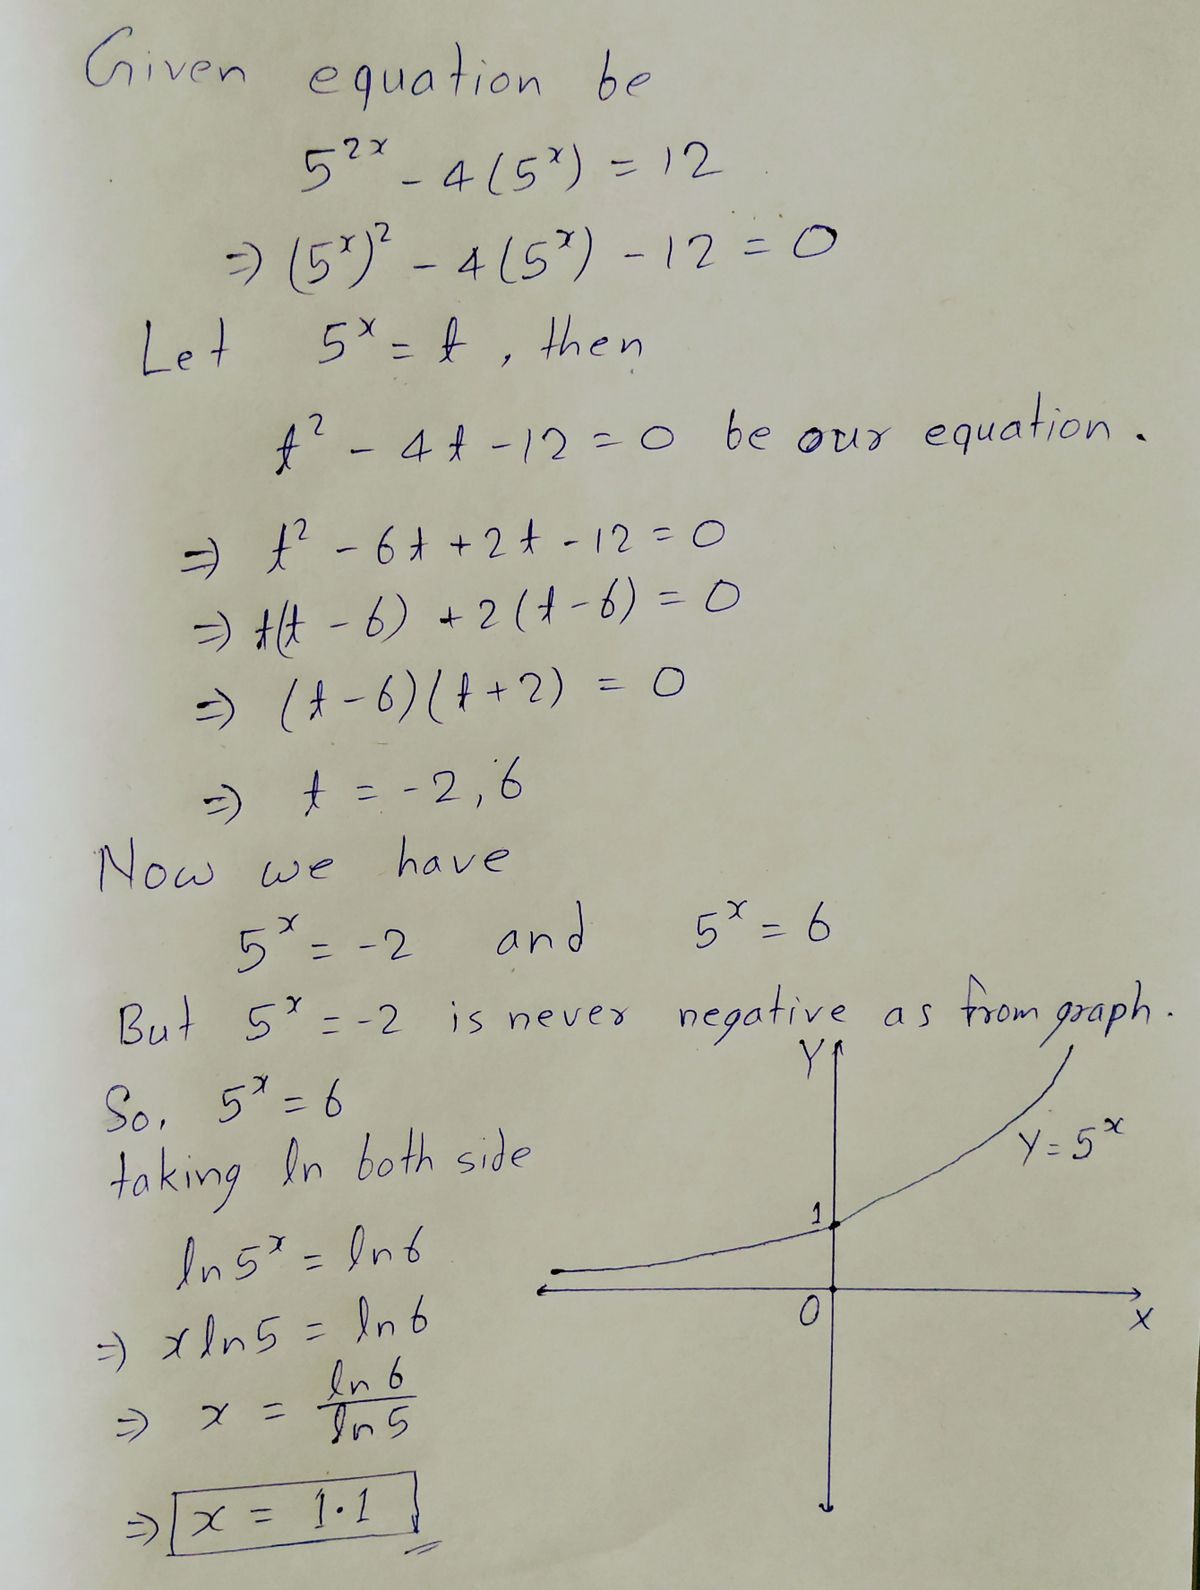 Given equation be
5²ˣ - 4(5ˣ) = 12
⇒ (5ˣ)² - 4(5ˣ) - 12 = 0
Let 5ˣ = t, then
t² - 4t - 12 = 0 be our equation.
⇒ t² - 6t + 2t - 12 = 0
⇒ t(t - 6) + 2(t - 6) = 0
⇒ (t - 6)(t + 2) = 0
⇒ t = -2, 6
Now we have
5ˣ = -2 and 5ˣ = 6
But 5ˣ = -2 is never negative as from graph.
So, 5ˣ = 6
taking ln both side
ln 5ˣ = ln 6
⇒ x ln 5 = ln 6
⇒ x = ln 6 / ln 5
⇒ x = 1.1
Y
Y = 5ˣ
1
O
X